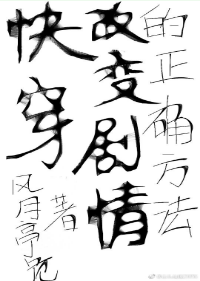 快穿
改变剧情
的正确方法
风月亭
著